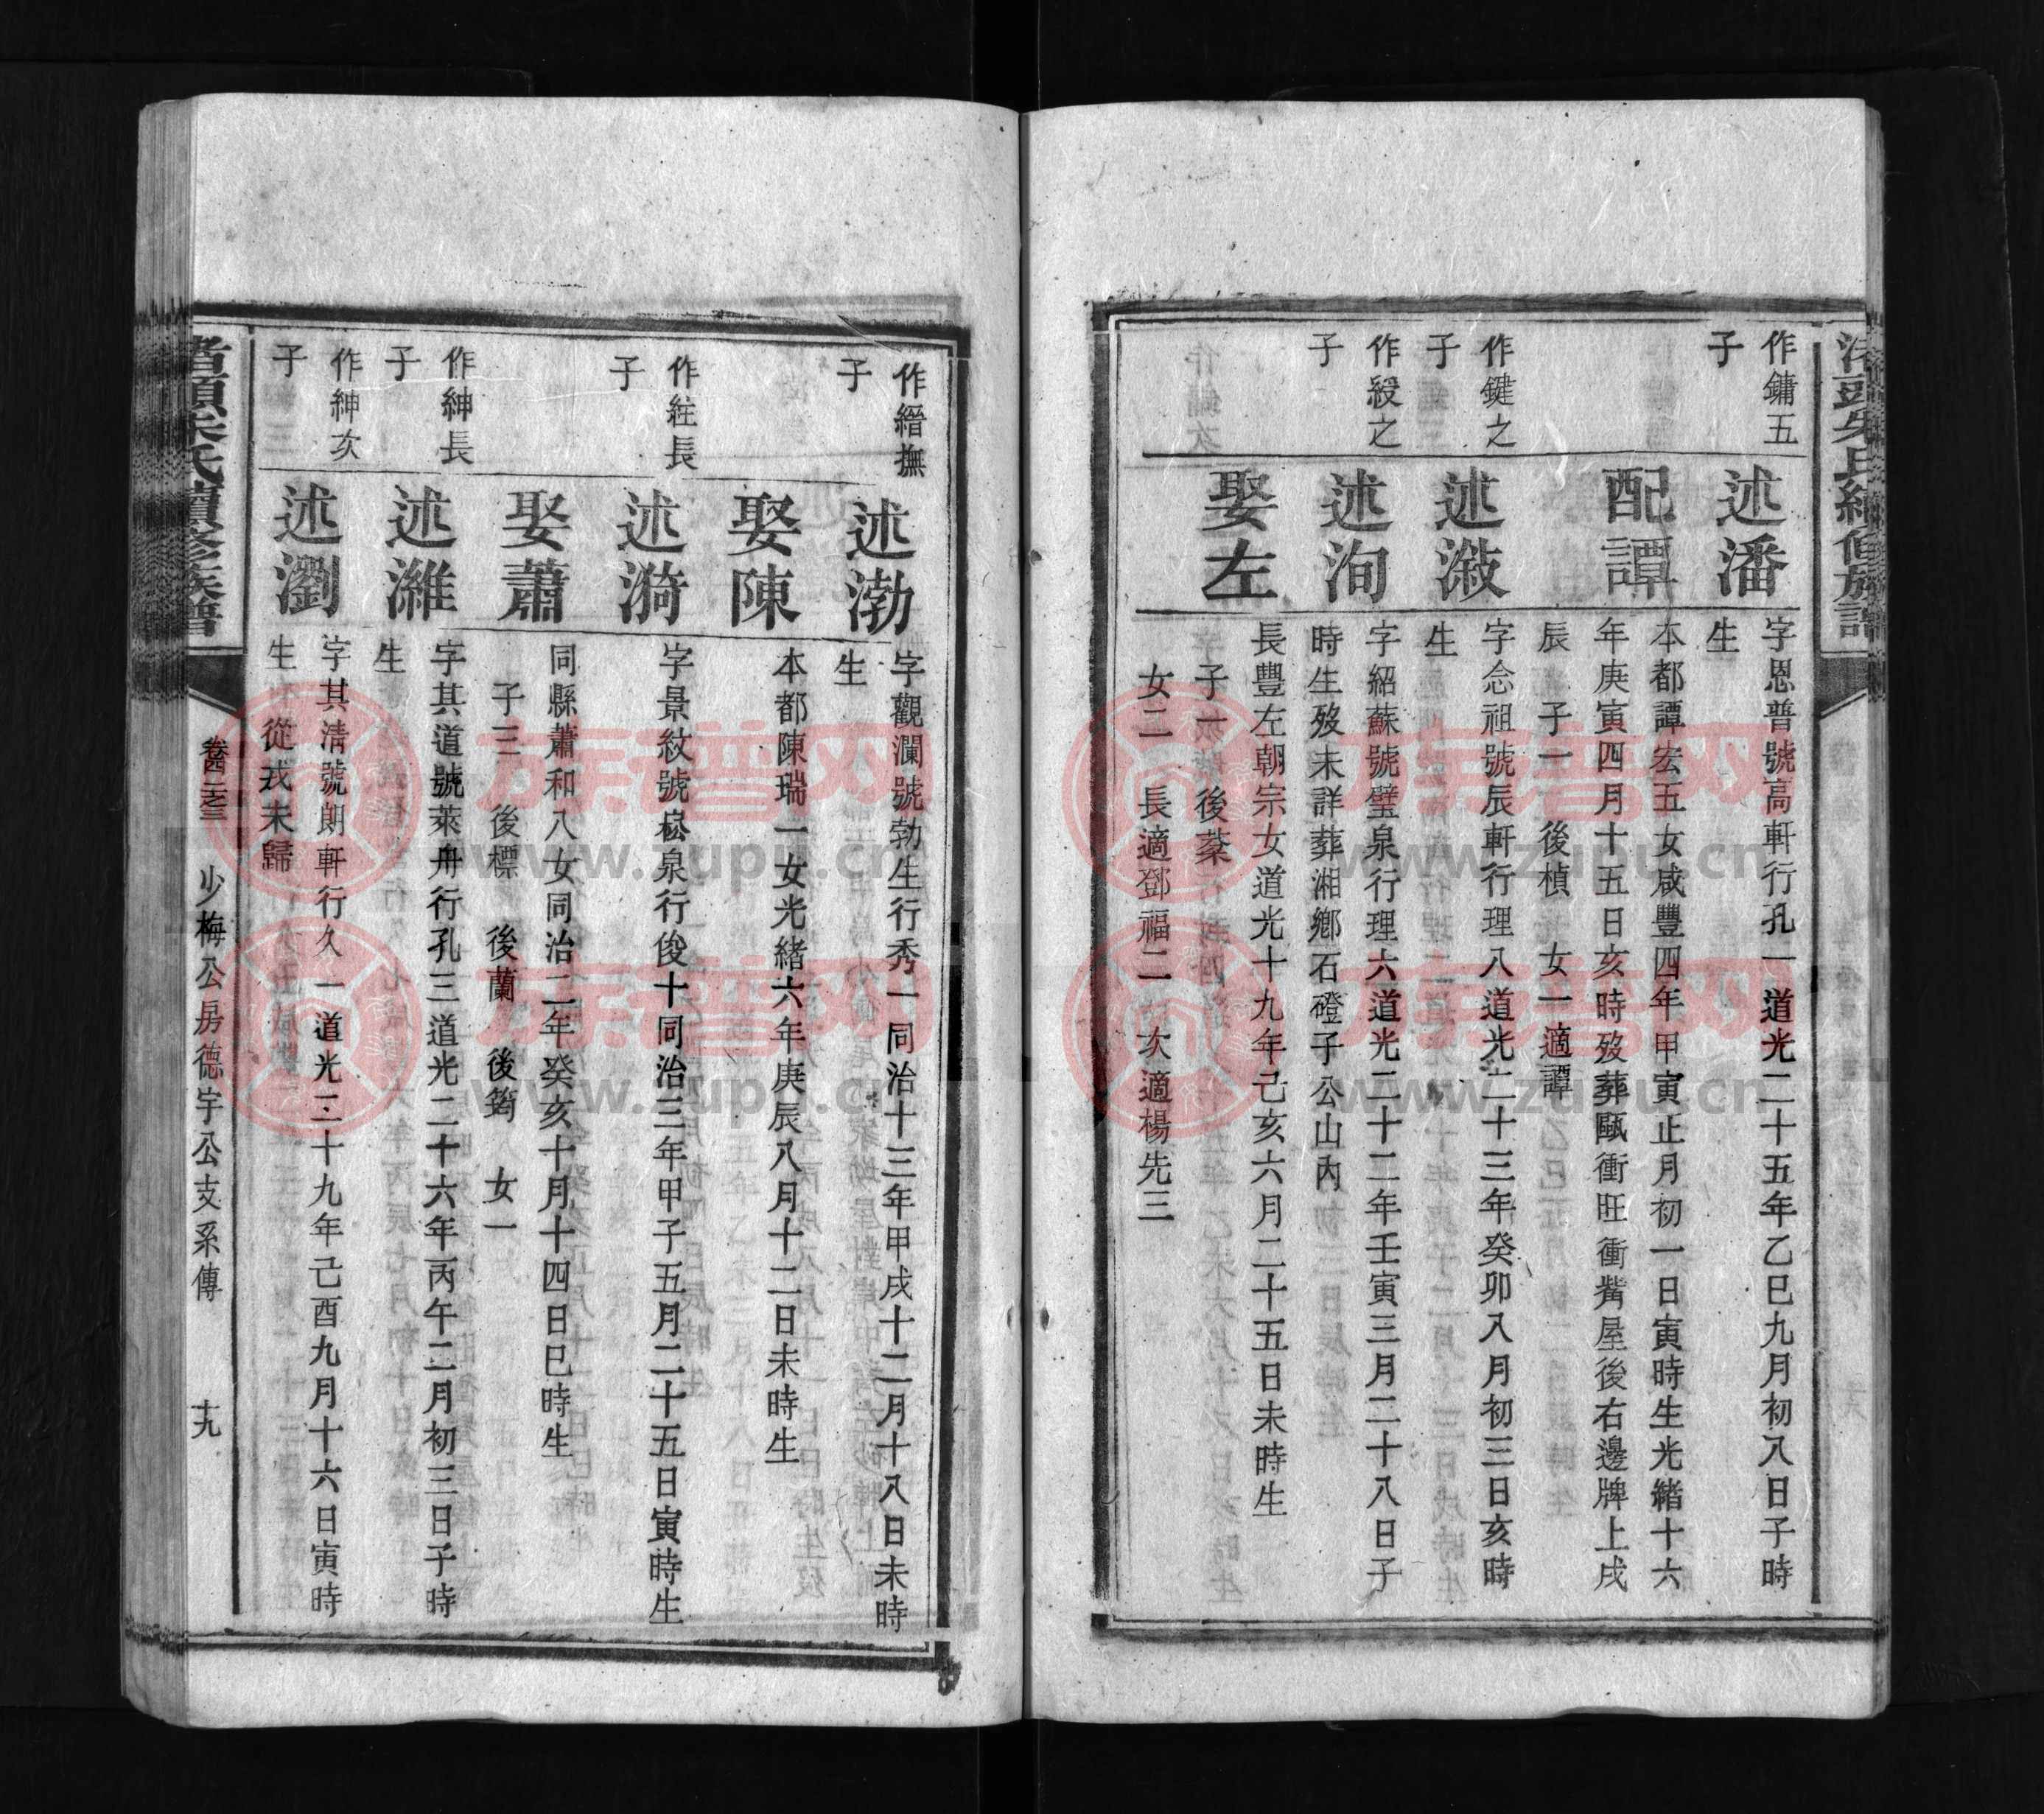 渚頭朱氏續修族譜
作鏞五
子
述潘
字恩普號高軒行孔一道光二十五年乙巳九月初八日子時
生
配譚
本都譚宏五女咸豐四年甲寅正月初一日寅時生光緒十六
年庚寅四月十五日亥時歿葬甌衝旺衝觜屋後右邊牌上戌
辰 子一 後楨 女一適譚
作鍵之
子
述潊
字念祖號辰軒行理八道光二十三年癸卯八月初三日亥時
生
作綬之
子
述洵
字紹蘇號璧泉行理六道光二十二年壬寅三月二十八日子
時生歿未詳葬湘鄉石磴子公山內
娶左
長豐左朝宗女道光十九年己亥六月二十五日未時生
子一 後棻
女二 長適鄧福二 次適楊先三
作縉撫
子
述渤
字觀瀾號勃生行秀一同治十三年甲戌十二月十八日未時
生
娶陳
本都陳瑞一女光緒六年庚辰八月十二日未時生
作紸長
子
述漪
字景紋號崧泉行俊十同治三年甲子五月二十五日寅時生
娶蕭
同縣蕭和八女同治二年癸亥十月十四日巳時生
子三 後標 後蘭 後筠 女一
作紳長
子
述濰
字其道號萊舟行孔三道光二十六年丙午二月初三日子時
生
作紳次
子
述瀏
字其清號朗軒行久一道光二十九年己酉九月十六日寅時
生 從戎未歸
渚頭朱氏續修族譜
卷四之三 少梅公房德宇公支系傳 十九
族譜网
www.zupu.cn
族譜网
www.zupu.cn
族譜网
www.zupu.cn
族譜网
www.zupu.cn